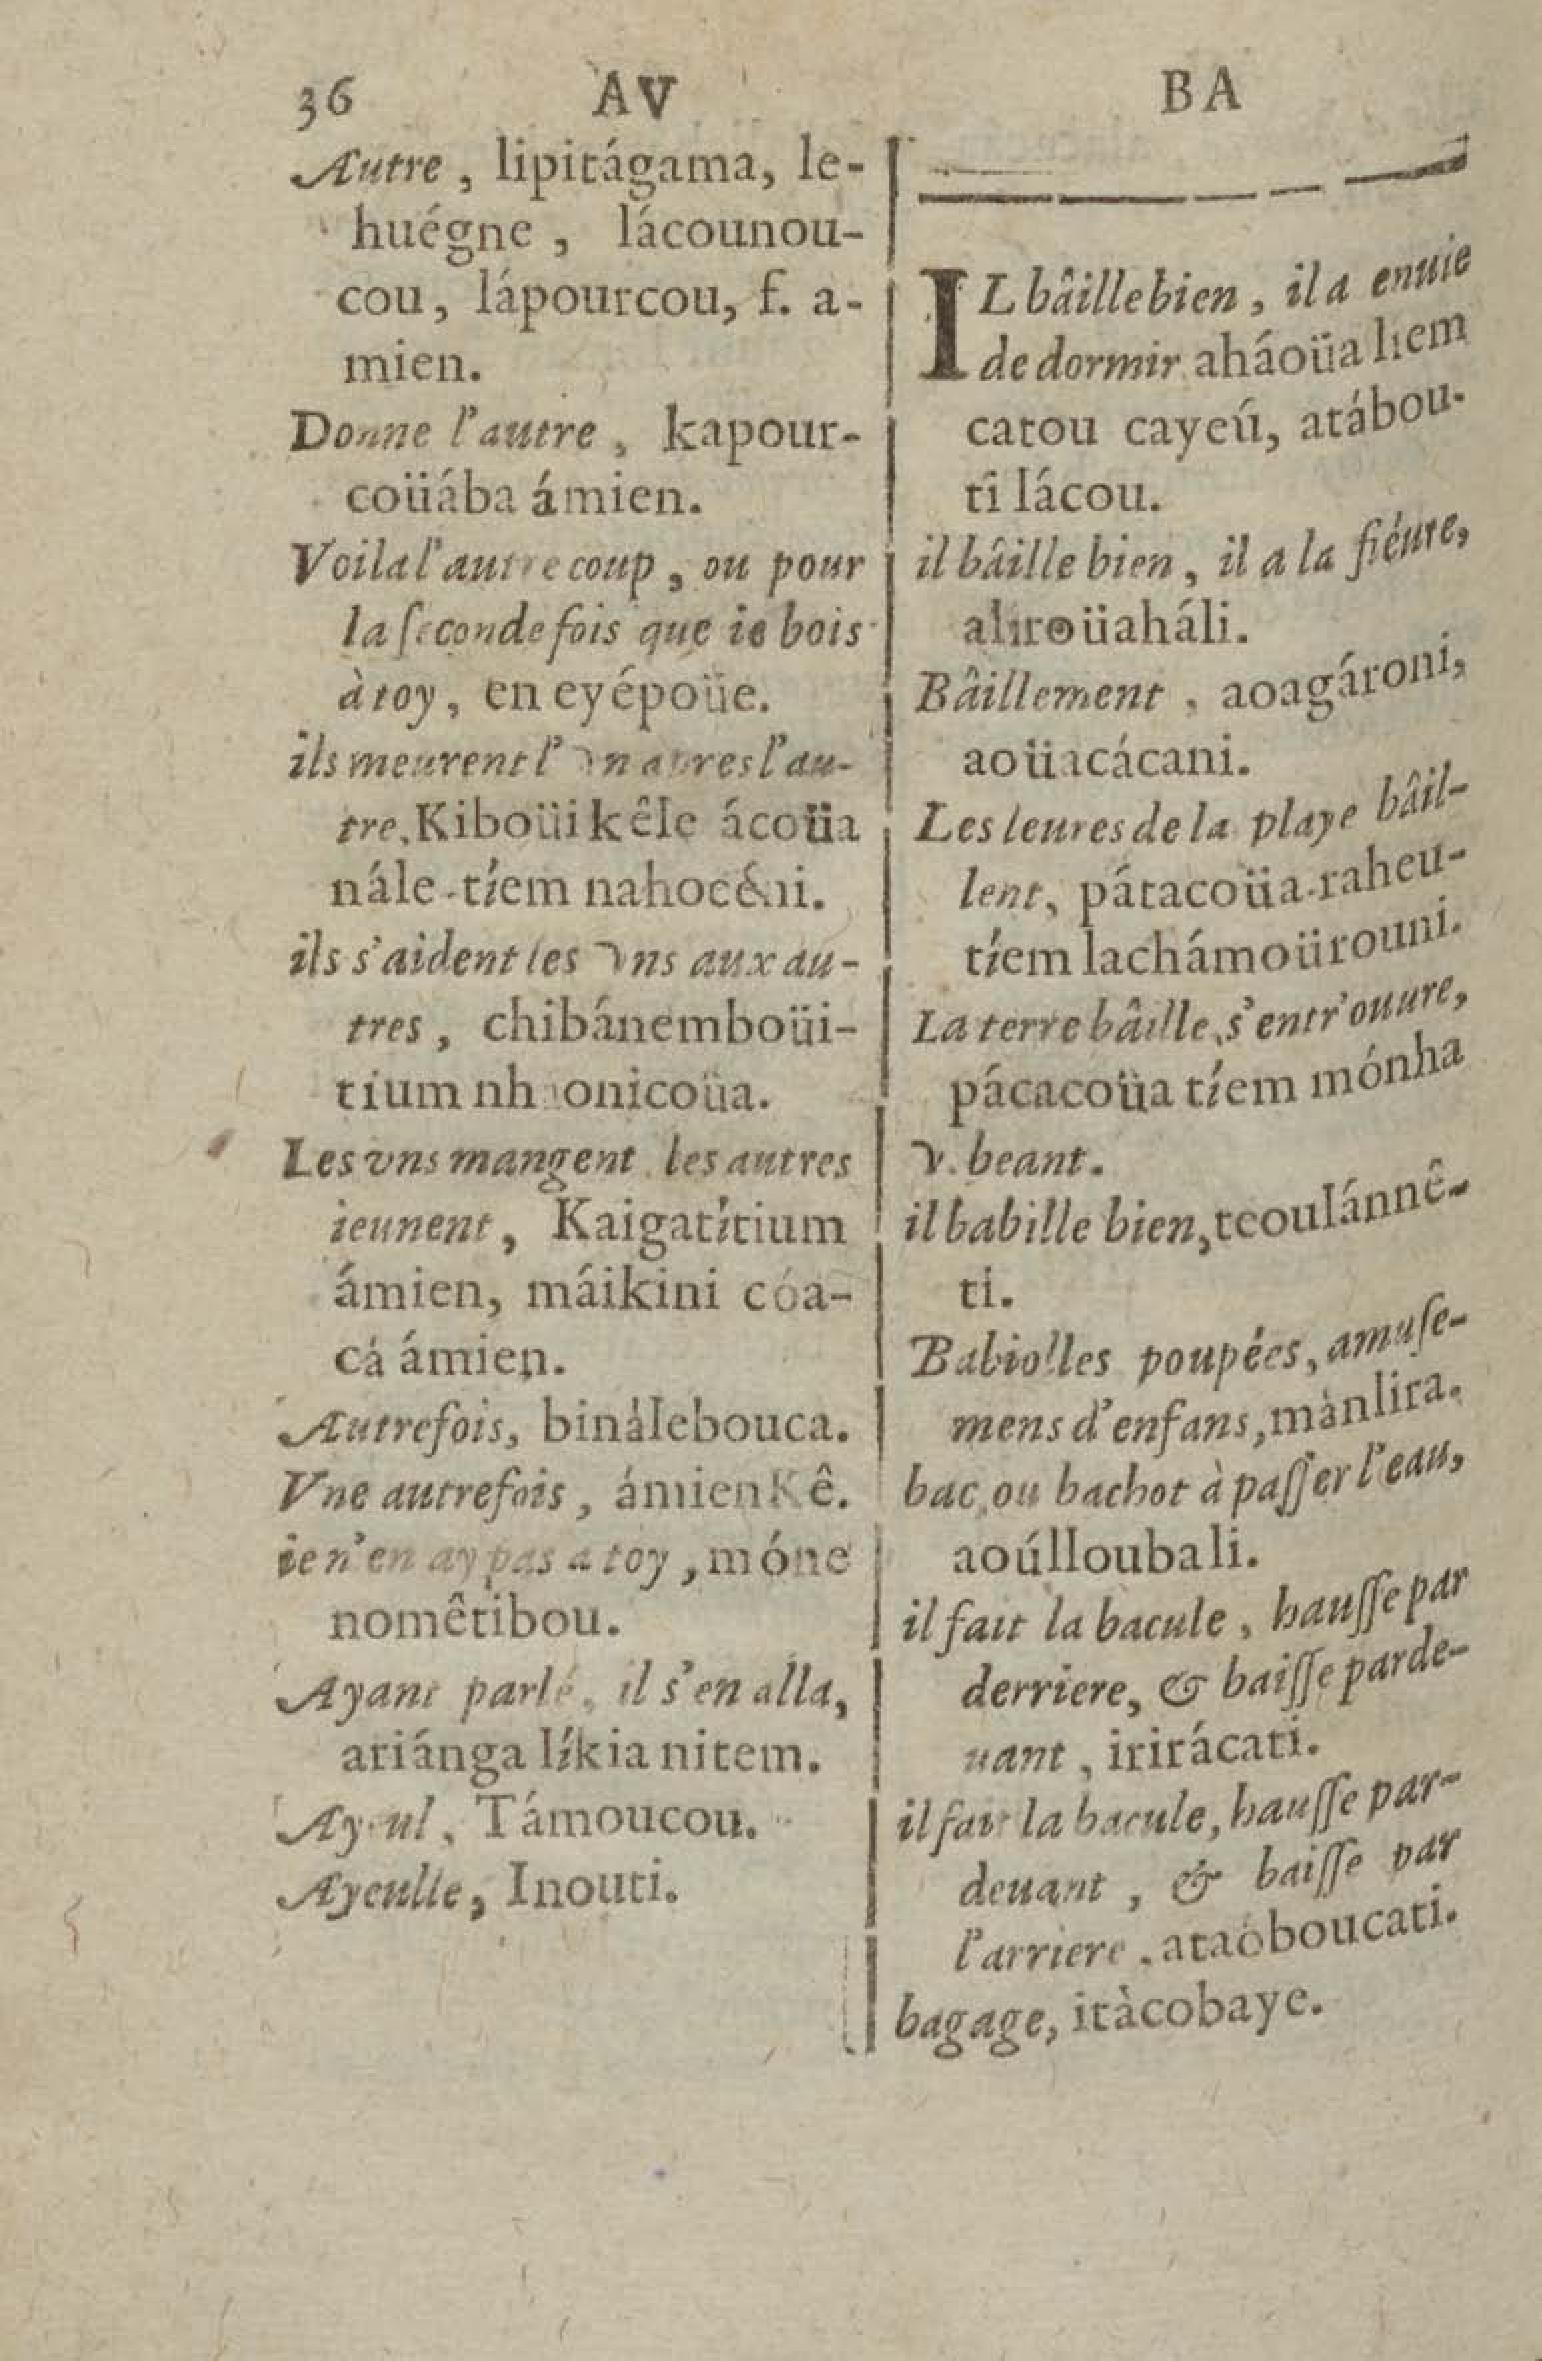 36 AV
Autre, lipitágama, le-
huégne, lácounou-
cou, lápourcou, f. a-
mien.
Donne l'autre, kapour-
coüába ámien.
Voila l'autre coup, ou pour
la seconde fois que ie bois
à toy, en eyépoüe.
ils meurent l'vn apres l'au-
tre, Kiboüikêle ácoüa
nále-tíem
ils s'aident les vns aux au-
tres, chibánemboüi-
tium onicoüa.
Les vns mangent les autres
ieunent, Kaigatítium
ámien, máikini cóa-
cá ámien.
Autrefois, binálebouca.
Vne autrefois, ámien Kê.
ie n'en ay pas a toy, móne
nomêtibou.
Ayant parlé, il s'en alla,
ariánga líkia nitem.
Ayeul, Támoucou.
Ayeulle, Inouti.
BA
IL bâille bien, il a enuie
de dormir aháoüa liem
catou cayeú, atábou-
ti lácou.
il bâille bien, il a la fiéure,
ahiroüaháli.
Bâillement, aoagároni,
aoüacácani.
Les leures de la playe bâil-
lent, pátacoüa-raheu-
tíem lachámoürouni.
La terre bâille, s'entr'ouure,
pácacoüa tíem mónha
v. beant.
il babille bien, teoulánnê-
ti.
Babiolles poupées, amuse-
mens d'enfans, mànlira.
bac, ou bachot à passer l'eau,
aoúlloubali.
il fait la bacule, hausse par
derriere, & baisse parde-
uant, irirácati.
il fait la bacule, hausse par-
deuant, & baisse par
l'arriere, ataòboucati.
bagage, itàcobaye.